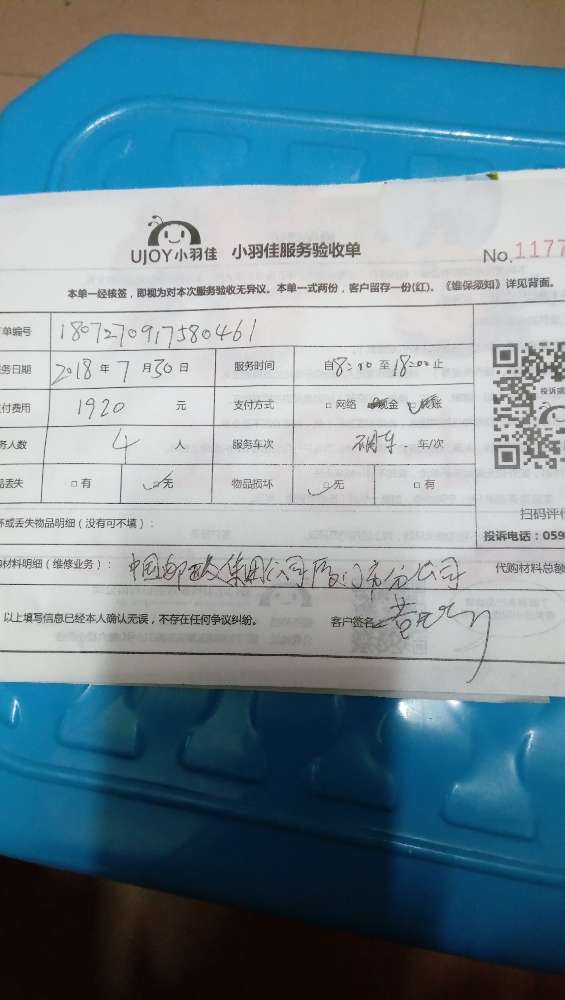 UJOY小羽佳 小羽佳服务验收单 No.1177
本单一经核签，即视为对本次服务验收无异议。本单一式两份，客户留存一份(红)。《维保须知》详见背面。
单编号 1807270917580461
务日期 2018年7月30日 服务时间 自8:00至18:00止
付费用 1920 元 支付方式 □网络 现金 转账
务人数 4 人 服务车次 车/次
品丢失 □有 无 物品损坏 无 □有
投诉
扫码评
坏或丢失物品明细（没有可不填）： 投诉电话：059
购材料明细（维修业务）： 中国邮政集团公司厦门市分公司 代购材料总额
以上填写信息已经本人确认无误，不存在任何争议纠纷。 客户签名